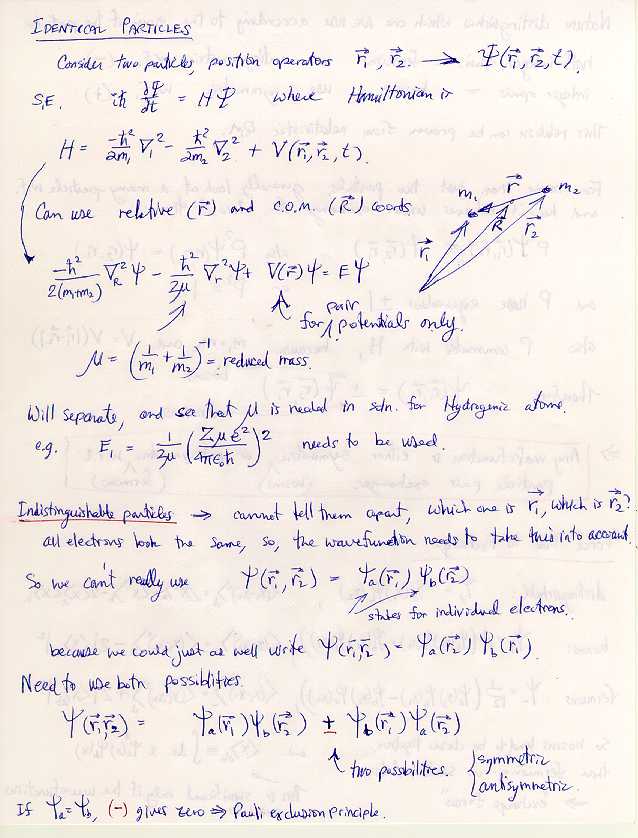 IDENTICAL PARTICLES
Consider two particles, position operators r⃗₁, r⃗₂. → Ψ(r⃗₁, r⃗₂, t).
S.E. iħ ∂Ψ/∂t = HΨ where Hamiltonian is
H = -ħ²/2m₁ ∇₁² - ħ²/2m₂ ∇₂² + V(r⃗₁, r⃗₂, t).
Can use relative (r⃗) and C.O.M. (R⃗) coords
m₁ r⃗ m₂
r⃗₁ R⃗ r⃗₂
-ħ²/2(m₁+m₂) ∇_R² ψ - ħ²/2μ ∇_r² ψ + V(r⃗) ψ = E ψ
for pair potentials only.
μ = (1/m₁ + 1/m₂)⁻¹ = reduced mass.
Will separate, and see that μ is needed in soln. for Hydrogenic atoms.
e.g. E₁ = 1/2μ (Zμe²/4πε₀ħ)² needs to be used.
Indistinguishable particles → cannot tell them apart, which one is r⃗₁, which is r⃗₂?
all electrons look the same, so, the wavefunction needs to take this into account.
So we can't really use ψ(r⃗₁, r⃗₂) = ψₐ(r⃗₁) ψ_b(r⃗₂)
states for individual electrons.
because we could just as well write ψ(r⃗₁, r⃗₂) = ψₐ(r⃗₂) ψ_b(r⃗₁).
Need to use both possiblities.
ψ(r⃗₁, r⃗₂) = ψₐ(r⃗₁) ψ_b(r⃗₂) ± ψ_b(r⃗₁) ψₐ(r⃗₂)
two possibilities. { symmetric
antisymmetric.
If ψₐ = ψ_b, (-) gives zero ⇒ Pauli exclusion principle.